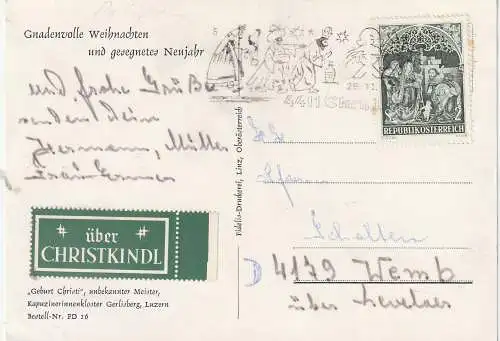 Gnadenvolle Weihnachten
und gesegnetes Neujahr
und frohe Grüße
senden dein
Hermann, Mütter
über
CHRISTKINDL
„Geburt Christi“, unbekannter Meister,
Kapuzinerinnenkloster Gerlisberg, Luzern
Bestell-Nr. FD 16
Fidelis-Druckerei, Linz, Oberösterreich
4411
REPUBLIK ÖSTERREICH
2
D
4179 Wemb
über Kevelaer